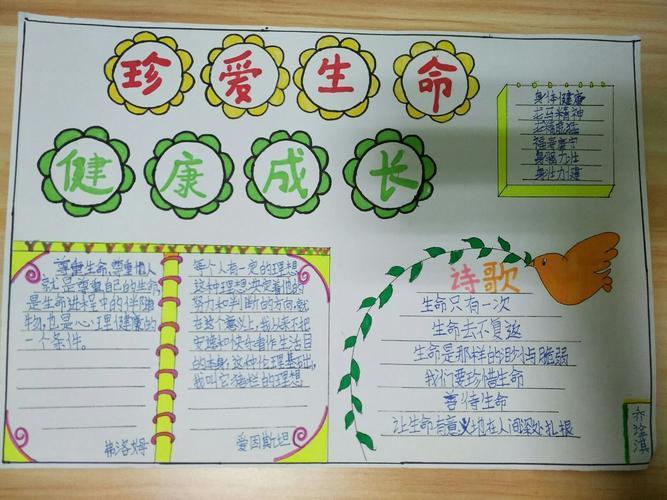 珍爱生命
健康成长
身体健康
龙马精神
身强力壮
身壮力健
尊重生命、尊重他人
就是尊重自己的生命
是生命进程中的伴随
物,也是心理健康的
一个条件。
弗洛姆
每个人有一定的理想
这种理想决定着他的
努力和判断的方向,就
在这个意义上,我从来不把
安逸和快乐看作生活目
的本身,这种伦理基础,
我叫它猪栏的理想
爱因斯坦
诗歌
生命只有一次
生命去不复返
生命是那样的渺小与脆弱
我们要珍惜生命
善待生命
让生命有意义地在人间深处扎根